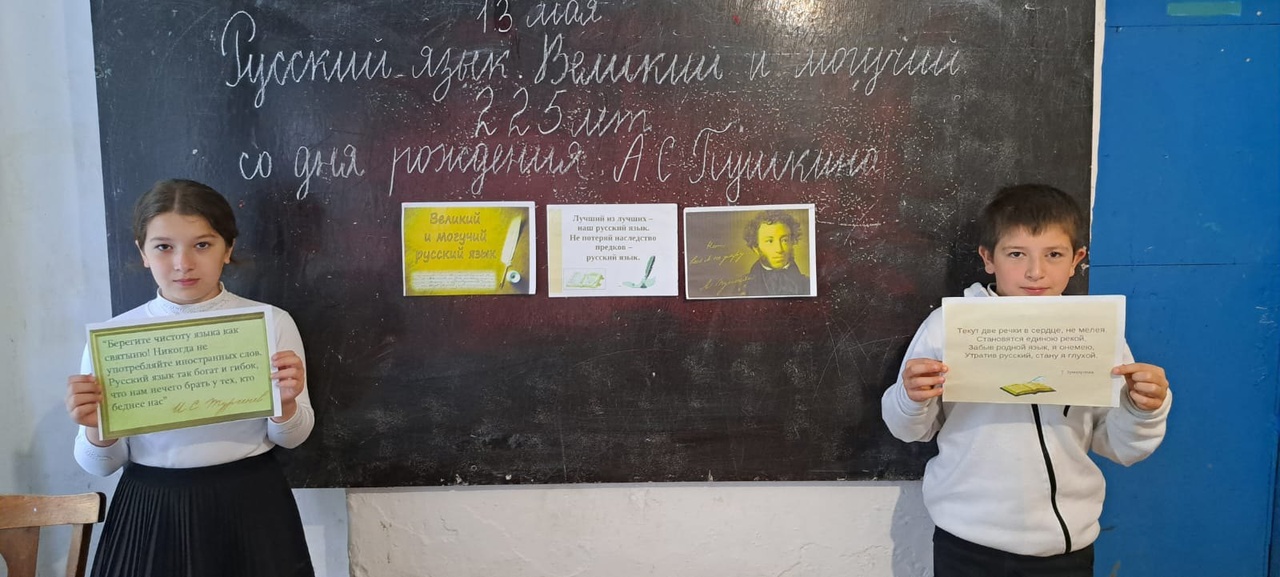 13 мая
Русский язык Великий и могучий
225 лет
со дня рождения А С Пушкина
Великий
и могучий
русский язык
Лучший из лучших –
наш русский язык.
Не потеряй наследство
предков –
русский язык.
"Берегите чистоту языка как
святыню! Никогда не
употребляйте иностранных слов.
Русский язык так богат и гибок,
что нам нечего брать у тех, кто
беднее нас"
И.С. Тургенев
Текут две речки в сердце, не мелея,
Становятся единою рекой.
Забыв родной язык, я онемею,
Утратив русский, стану я глухой.